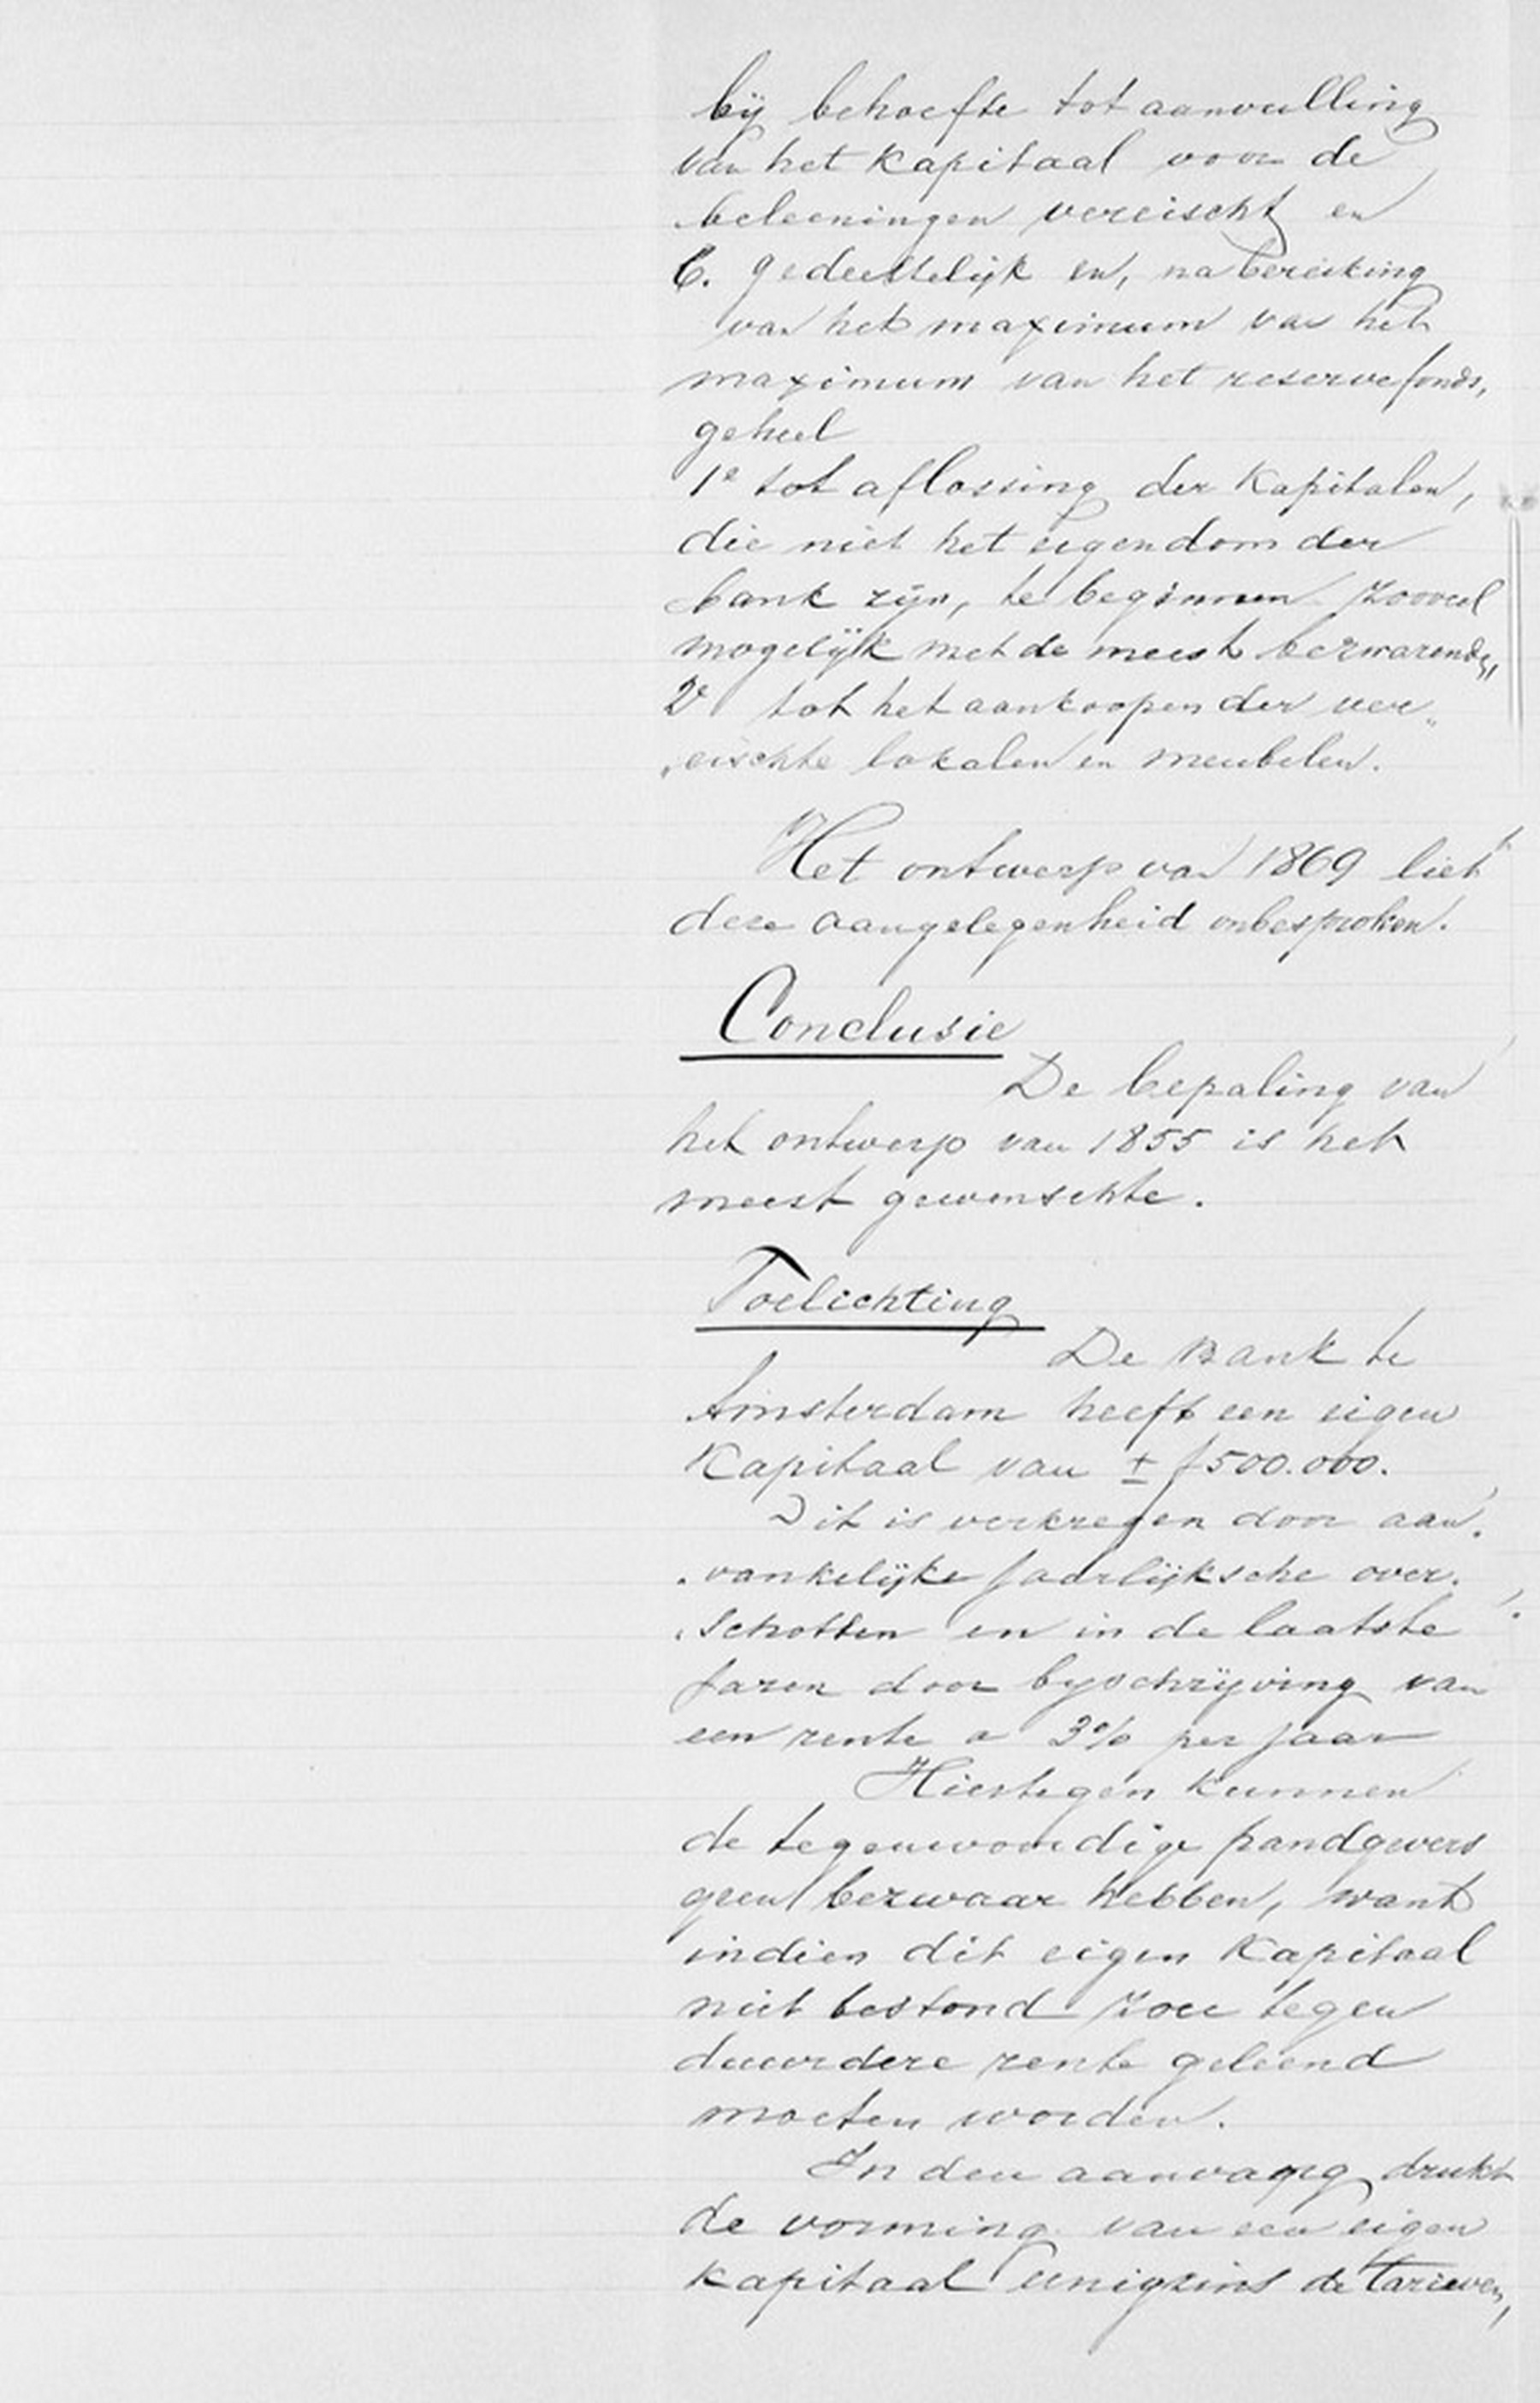 bij behoefte tot aanvulling
van het kapitaal voor de
beleeningen vereischt en
C. gedeeltelijk en, na bereiking
van het maximum van het
maximum van het reservefonds,
geheel
1e tot aflossing der kapitalen,
die niet het eigendom der
bank zijn, te beginnen zooveel
mogelijk met de meest bezwarende,
2e tot het aankoopen der ver„
„eischte lokalen en meubelen.
Het ontwerp van 1869 liet
deze aangelegenheid onbesproken.
Conclusie
De bepaling van
het ontwerp van 1855 is het
meest gewenschte.
Toelichting
De Bank te
Amsterdam heeft een eigen
Kapitaal van ± f 500.000.
Dit is verkregen door aan.
.vankelijke jaarlijksche over.
.schotten en in de laatste
jaren door bijschrijving van
een rente a 3% per jaar
Hiertegen kunnen
de tegenwoordige pandgevers
geen bezwaar hebben, want
indien dit eigen Kapitaal
niet bestond zou tegen
duurdere rente geleend
moeten worden.
In den aanvang drukt
de vorming van een eigen
kapitaal eenigzins de tarieven,